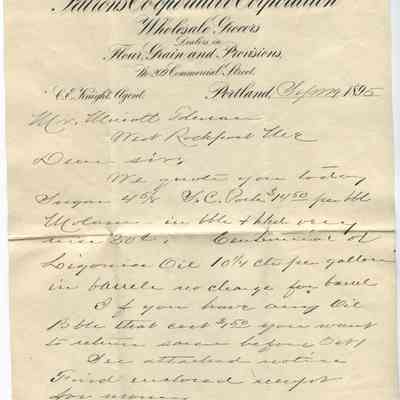 Patrons Cooperative Corporation
Wholesale Grocers
Dealers in
Flour, Grain and Provisions,
No. 209 Commercial Street.
C.E. Knight, Agent. Portland, 1895
Mr.
West Rockport Me
Dear sir;
We quote you today
Sugar 4 5/8 S.C. Pork $14.50 per bbl
in bbl &
Centennial or
Ligonia Oil 10 1/4 cts per gallon
in barrels no charge for barrel
If you have any Oil
Bbls that cost you want
to return same before Oct 1
See attached notice
Find enclosed receipt
for money